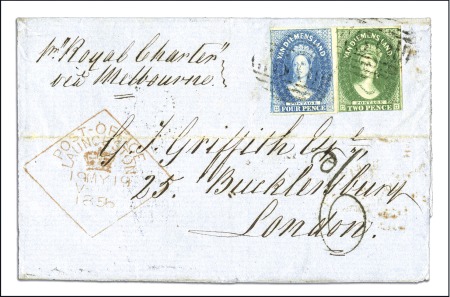 pr "Royal Charter"
via Melbourne
VAN DIEMENS LAND
POSTAGE
FOUR PENCE
VAN DIEMENS LAND
POSTAGE
TWO PENCE
POST-OFFICE
LAUNCESTON
19 MY 19
1856
G. J. Griffith Esqr
25. Bucklersbury
London.